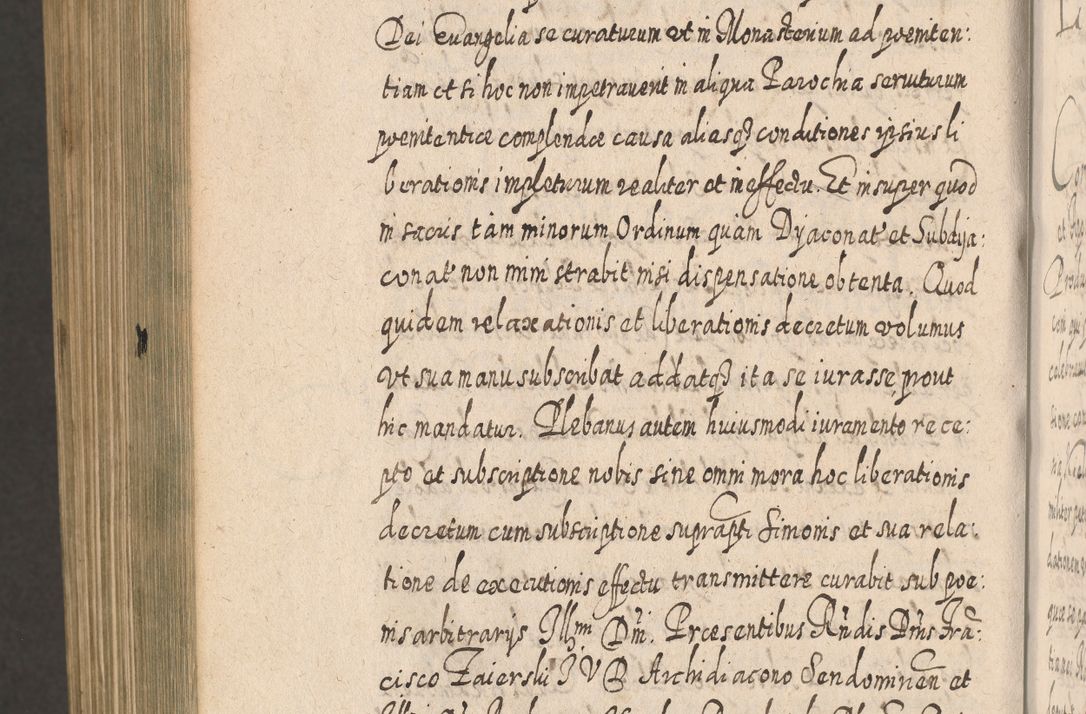 Dei Euangelia se curaturum ut in Monasterium ad poeniten:
tiam et si hoc non impetrauerit in aliqua Parochia seruiturum
poenitentice complendce causa aliasq3 conditiones ipsius li
berationis impleturum realiter et in effectu. Et insuper quod
in sacris tam minorum Ordinum quam Dyaconat' et Subdya:
conat' non ministrabit nisi dispensatione obtenta. Quod
quidem relaxationis et liberationis decretum volumus
ut sua manu subscribat addatq3 ita se iurasse prout
hic mandatur. Plebanus autem huiusmodi iuramento rece:
pto et subscriptione nobis sine omni mora hoc liberationis
decretum cum subscriptione suprapti Simonis et sua rela:
tione de executionis effectu transmittere curabit sub poe:
nis arbitrarys Illmi Dni. Prcesentibus Rndis Dnis Frā:
cisco Zaierski I V D Archidiacono Sendomirien et